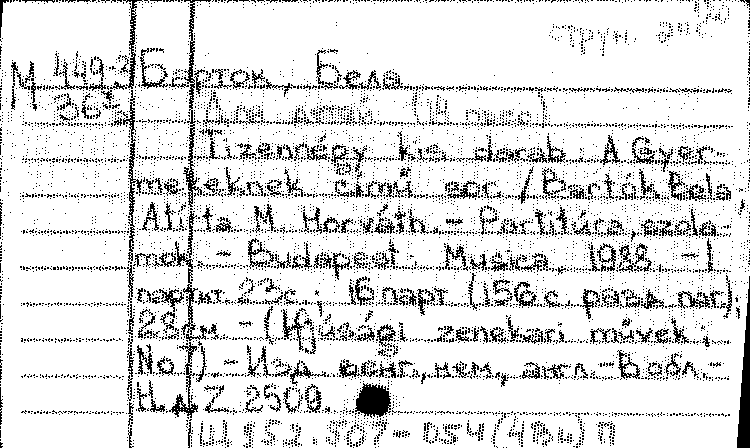 струн. анс
М 4493 Барток, Бела
36 Для детей. (14 пьес)
Tizennégy kis darab A Gyer-
mekeknek című sor. / Bartók Béla;
Átírta M. Horváth. - Partitúra, szóla-
mok. - Budapest: Musica, 1988. - 1
партит. 23 с.; 16 парт (156 с. разд. паг.);
28 см. - (Ifjúsági zenekari művek;
No 7). - Изд. венг., нем., англ. - В обл. -
Н.д. Z. 2500.
Щ 952.807-054(4Вн) П